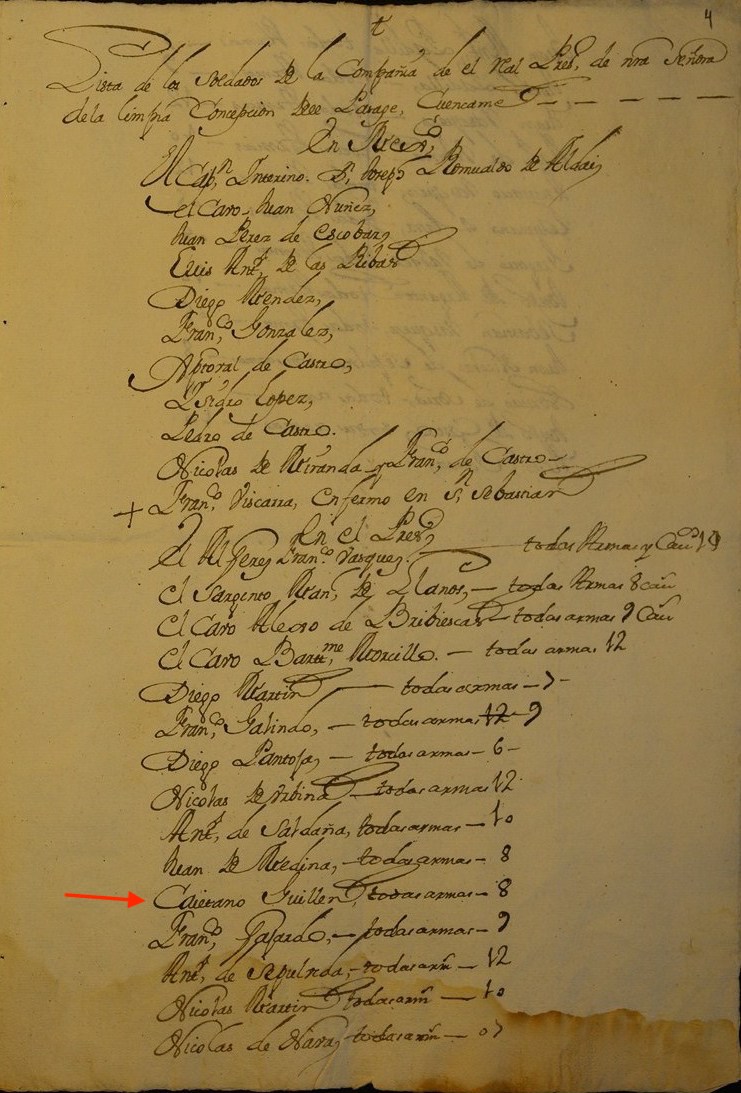 4
Lista de los Soldados de la Compañia de el real Pres.º de nra Señora
de la limpia Concepcion del Pasage, Cuencame
En Mex.co
El Cap.n Interino. D. Joseph Romualdo de Aldai,
el Cavo Juan Nuñez,
Juan Perez de escobar,
Luis Ant.º de las Ribas
Diego Mendez,
Fran.co Gonzalez,
de Castro,
Ysidro Lopez,
Pedro de Castro.
Nicolas de Miranda y Fran.co de Castro
+ Fran.co Viscarra, enfermo en S.n Sebastian
En el Pres.º
El Alferez Fran.co Vasquez. todas Armas y Cav.os
el Sargento Man.l de Llanos, — todas Armas 8 cav
el Cavo de Bribiescas todas armas 9 Cav
el Cavo Bart.me Morcillo. — todas armas 12
Diego Martin, — todas armas — 7 –
Fran.co Galindo, — todas armas 12 – 9
Diego Pantoja, — todas armas — 6 –
Nicolas de Urbina todas armas 12
Ant.º de Saldaña, todas armas — 10
Juan de Medina, — todas armas — 8
Caietano Guillen, todas armas — 8
Fran.co Fajardo, — todas armas — 9
Ant.º de Sepulveda, — todas arm — 12
Nicolas Martin todas arm — 10
Nicolas de Nava, todas arm — 07